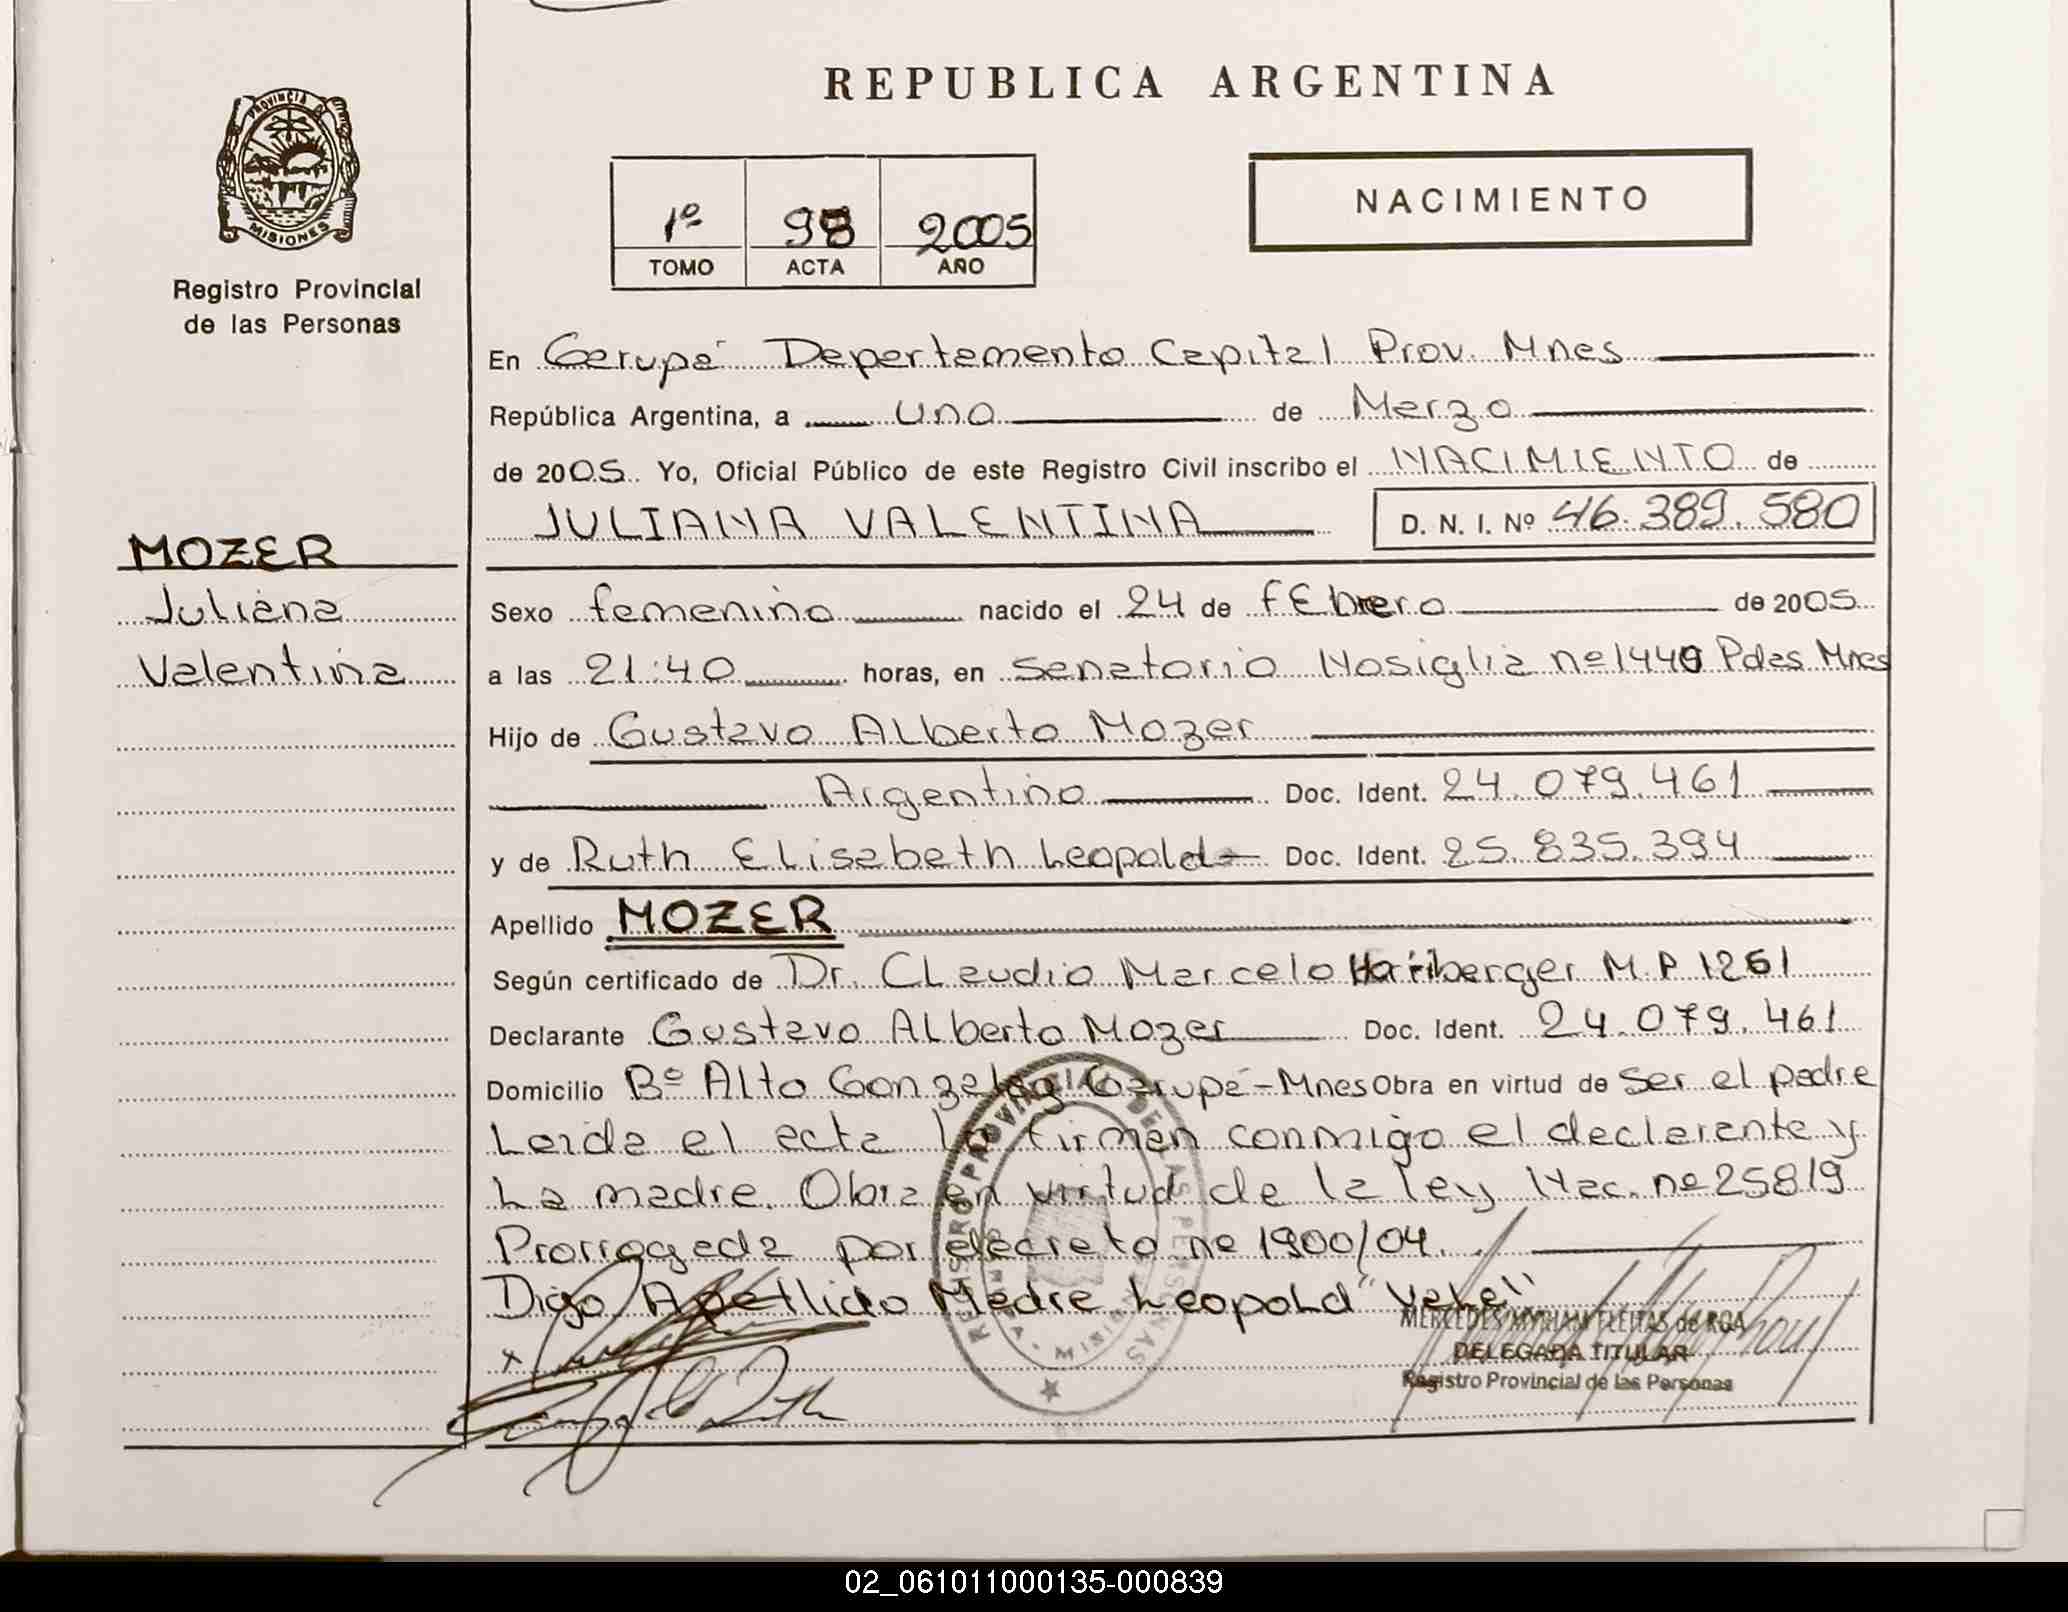 REPUBLICA ARGENTINA
PROVINCIA DE
MISIONES
Registro Provincial
de las Personas
1º 98 2005
TOMO ACTA AÑO
NACIMIENTO
En Garupá Departamento Capital Prov. Mnes
República Argentina, a uno de Marzo
de 2005. Yo, Oficial Público de este Registro Civil inscribo el NACIMIENTO de
JULIANA VALENTINA D. N. I. Nº 46.389.580
MOZER
Juliana
Valentina
Sexo femenino nacido el 24 de fEbrero de 2005
a las 21:40 horas, en Sanatorio Nosiglia nº 1440 Pdas Mnes
Hijo de Gustavo Alberto Mozer
Argentino Doc. Ident. 24.079.461
y de Ruth Elisabeth Leopold Doc. Ident. 25.835.394
Apellido MOZER
Según certificado de Dr. Claudio Marcelo M.P 1261
Declarante Gustavo Alberto Mozer Doc. Ident. 24.079.461
Domicilio Bº Alto Gonzalez Garupá-Mnes Obra en virtud de Ser el padre
Leida el acta la firman conmigo el declarante y
La madre. Obra en virtud de la ley Nac. nº 25819
Prorrogada por decreto nº 1900/04.
Digo Apellido Madre Leopold "Vale"
REGISTRO PROVINCIAL DE LAS PERSONAS
MERCEDES MYRIAM FLEITAS de ROA
DELEGADA TITULAR
Registro Provincial de las Personas
02_061011000135-000839